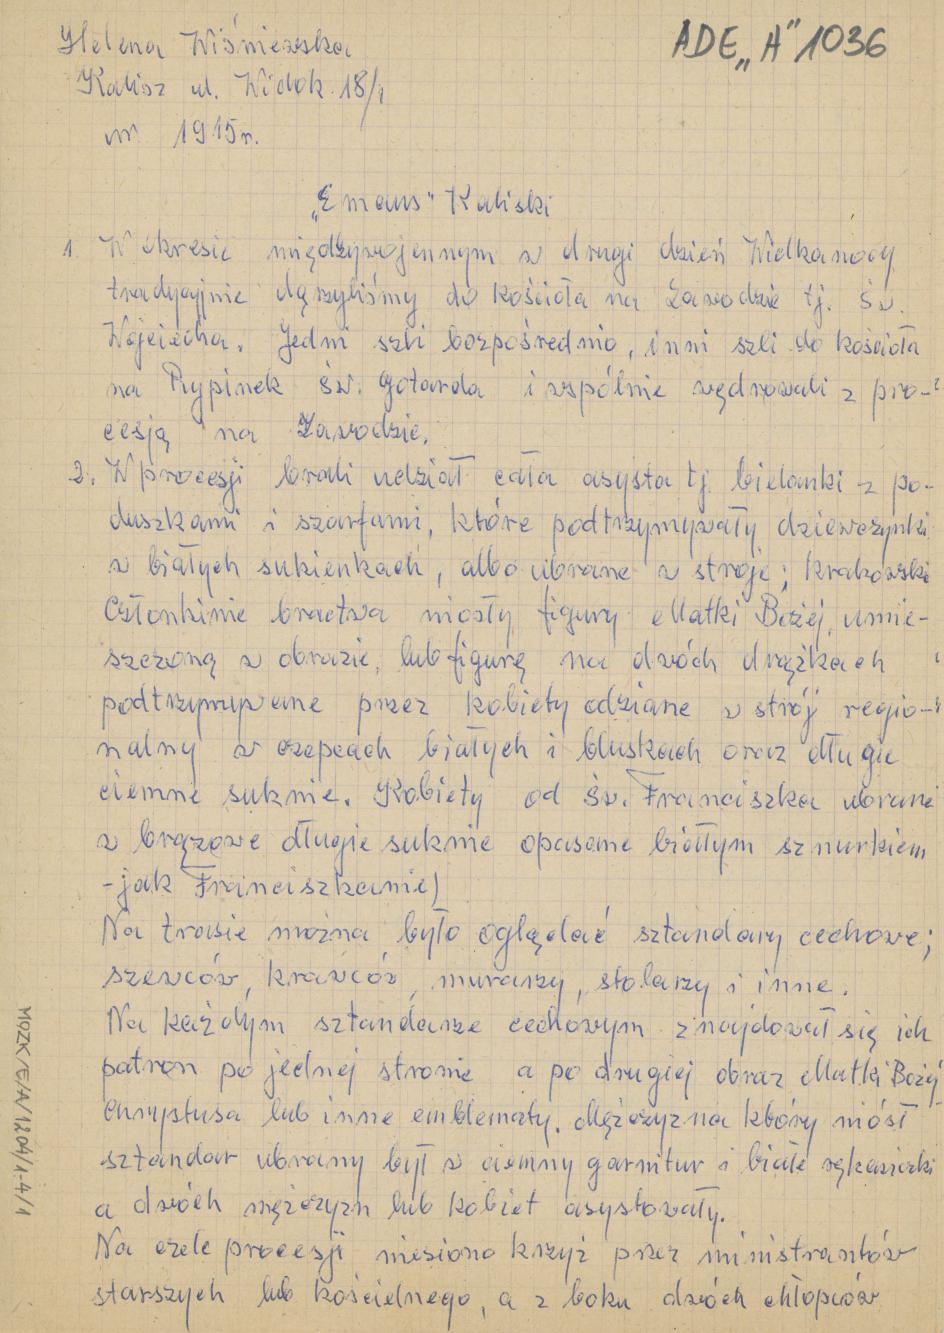 Helena Wiśniewska
ADE „A" 1036
Kalisz ul. Widok 18/1
ur 1915r.
„Emaus" Kaliski
1. W okresie międzywojennym w drugi dzień Wielkanocy
tradycyjnie dążyliśmy do kościoła na Zawodzie tj. św.
Wojciecha. Jedni szli bezpośrednio, inni szli do kościoła
na Rypinek św. Gotarda i wspólnie wędrowali z pro-
cesją na Zawodzie.
2. W procesji brali udział cała asysta tj. bielanki z po-
duszkami i szarfami, które podtrzymywały dziewczynki
w białych sukienkach, albo ubrane w stroje; krakowski
Członkinie bractwa niosły figury Matki Bożej, umie-
szczoną w obrazie, lub figurę na dwóch drążkach
podtrzymywane przez kobiety odziane w strój regio-
nalny w czepcach białych i bluskach oraz długie
ciemne suknie. Kobiety od św. Franciszka ubrane
w brązowe długie suknie opasane białym sznurkiem
- jak Franciszkanie)
Na trasie można było oglądać sztandary cechowe;
szewców, krawców, murarzy, stolarzy i inne.
Na każdym sztandarze cechowym znajdował się ich
patron po jednej stronie a po drugiej obraz Matki Bożej
Chrystusa lub inne emblematy. Mężczyzna który niósł
sztandar ubrany był w ciemny garnitur i białe rękawiczki
a dwóch mężczyzn lub kobiet asystowały.
Na czele procesji niesiono krzyż przez ministrantów
starszych lub kościelnego, a z boku dwóch chłopców
MOZK/E/A/1204/1-4/1